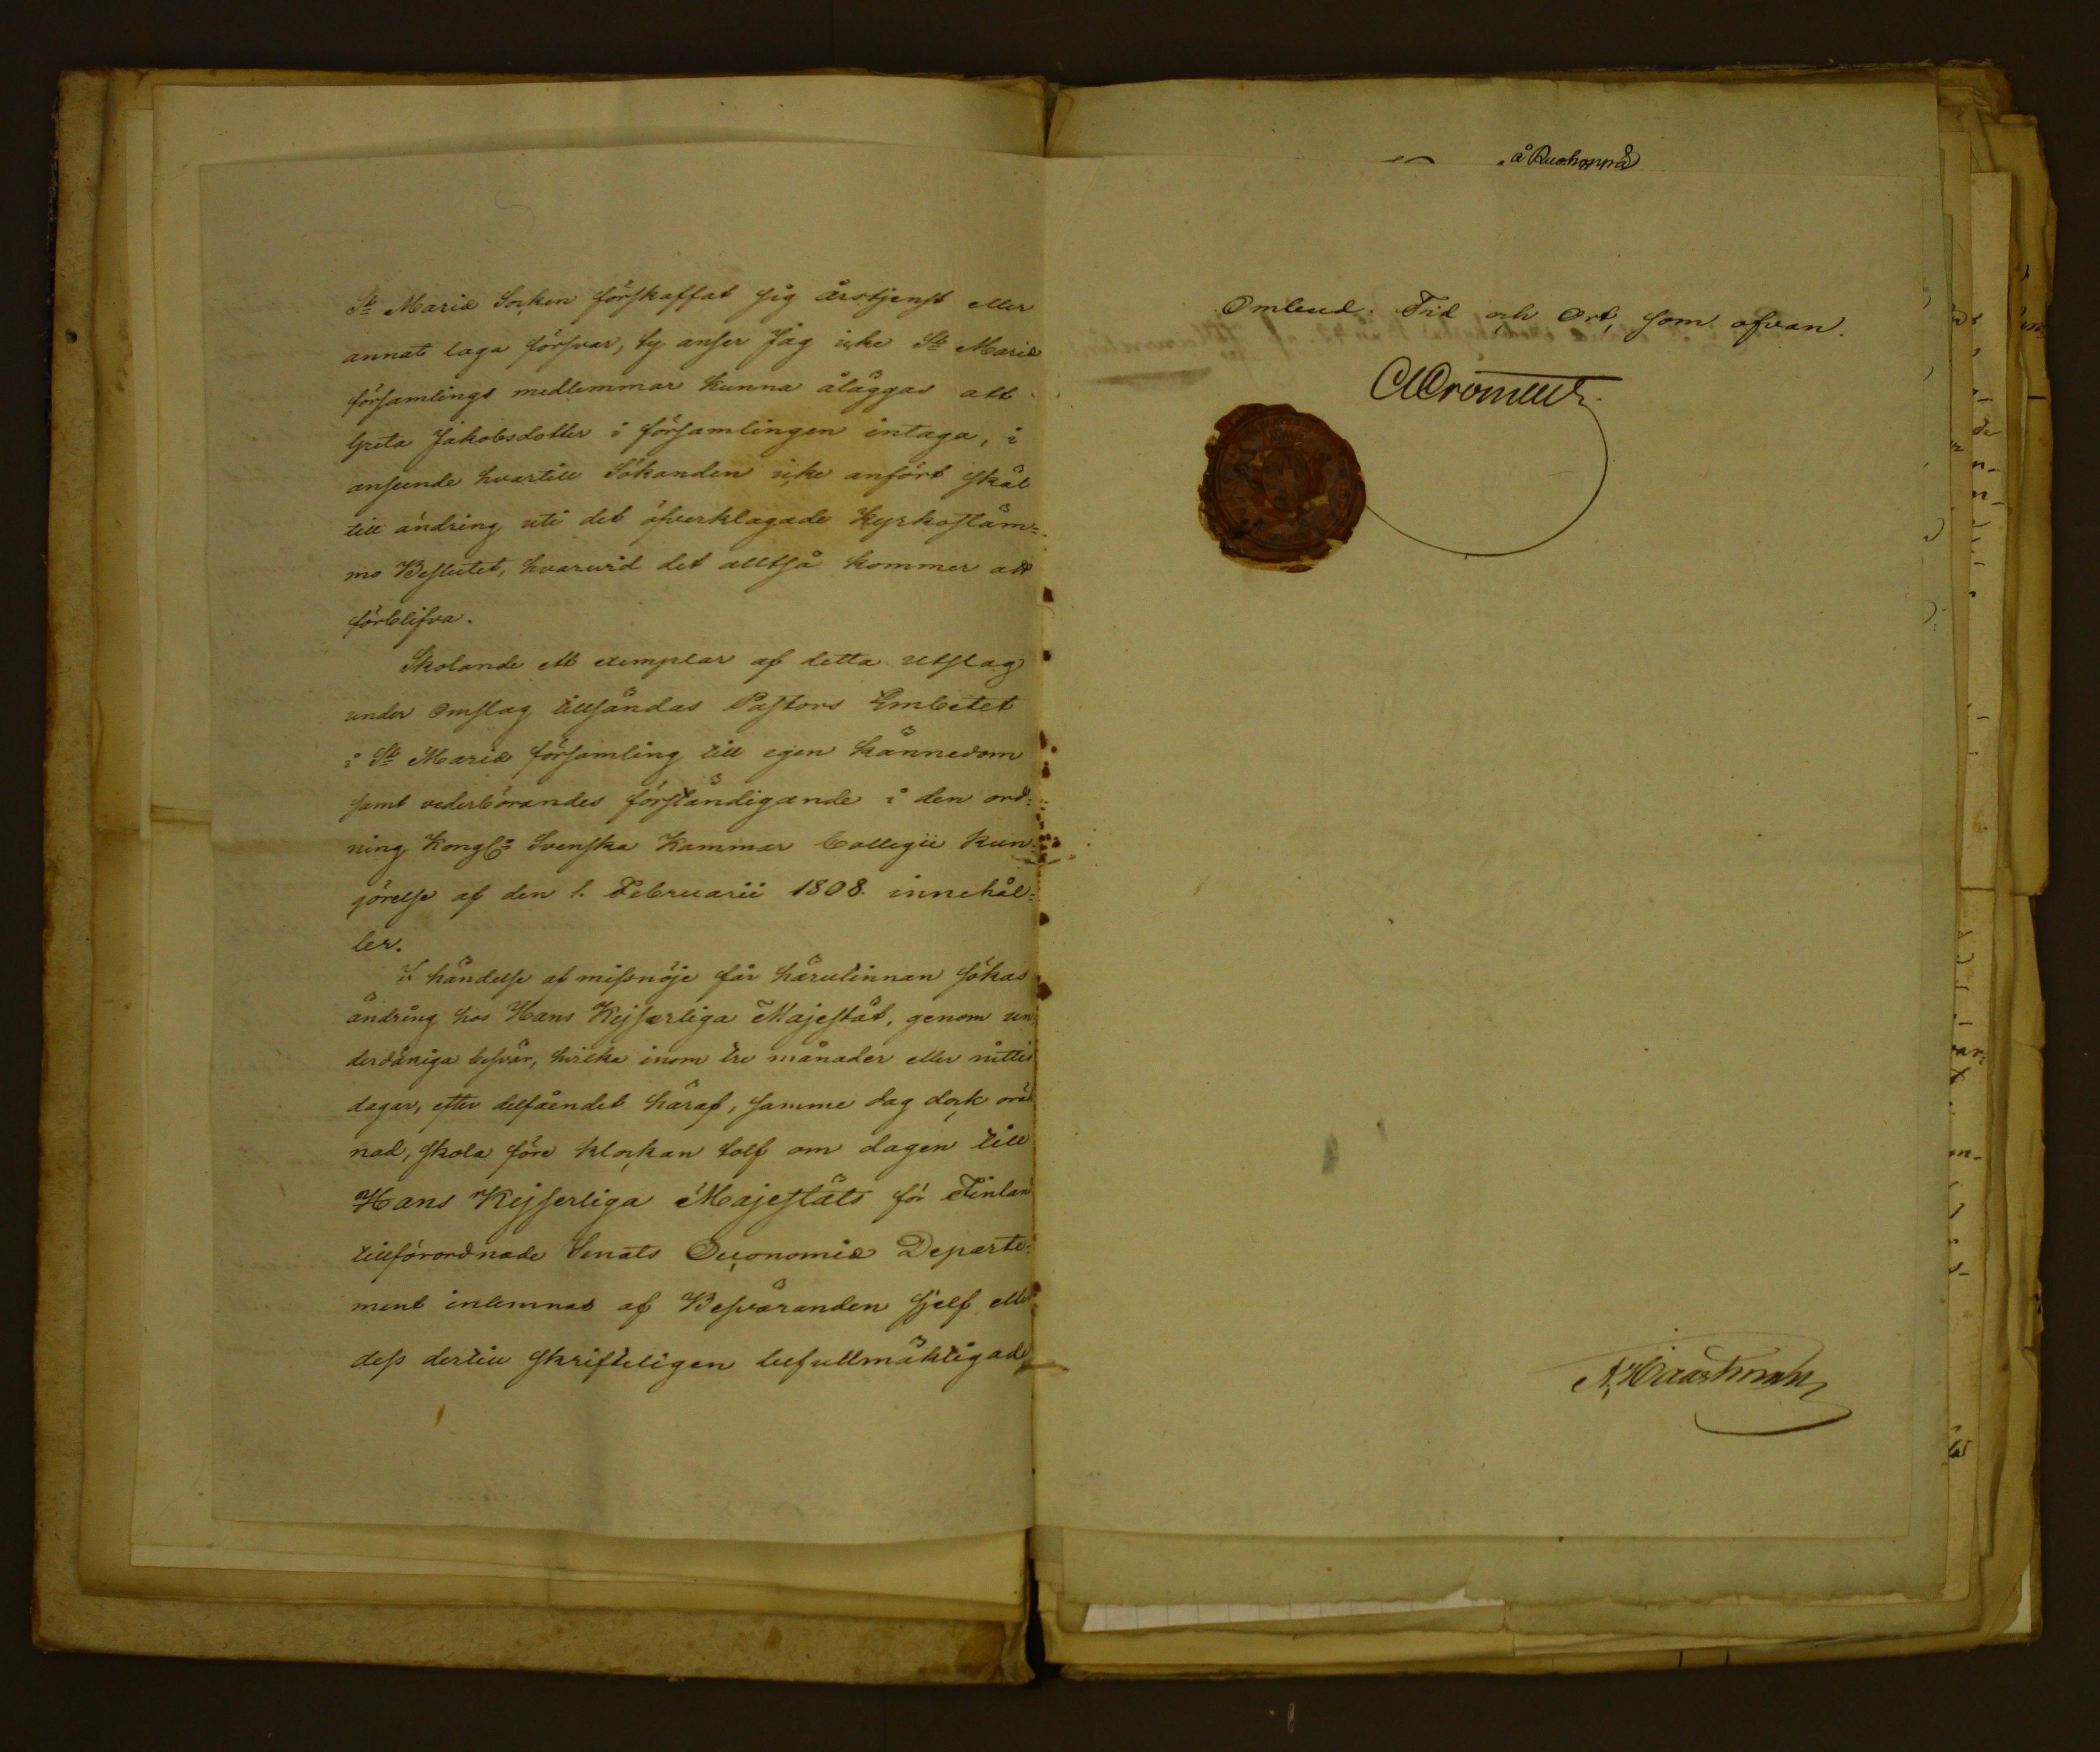 St Mariæ Socken förskaffat sig årstjenst eller
annat laga försvar, ty anser Jag icke St Mariæ
församlings medlemmar kunna åläggas att
Greta Jakobsdotter i församlingen intaga, i
anseende hvartill Sökanden icke anfört skäl
till ändring uti det öfverklagade Kyrkostäm=
mo Beslutet, hvarvid det alltså kommer att
förblifva.
Skolande ett exemplar af detta utslag
under Omslag tillsändas Pastors Embetet
i St Mariæ församling till egen kännedom
samt vederbörandes förständigande i den ord=
ning Kongl: Svenska Kammar Collegii Kun=
görelse af den 1. Februarii 1808. innehål=
ler.
I händelse af missnöje får härutinnan sökas
ändring hos Hans Kejserliga Majestät, genom un=
derdåniga besvär, hvilka inom tre månader eller nittio
dagar, efter delfåendet häraf, samme dag dock oräk
nad, skola före klockan tolf om dagen till
Hans Kejserliga Majestäts för Finland
tillförordnade Senats Oeconomie Departe=
ment inlemnas af Besväranden sjelf eller
dess dertill skrifteligen befullmäktigade
Ombud. Tid och Ort, som ofvan.